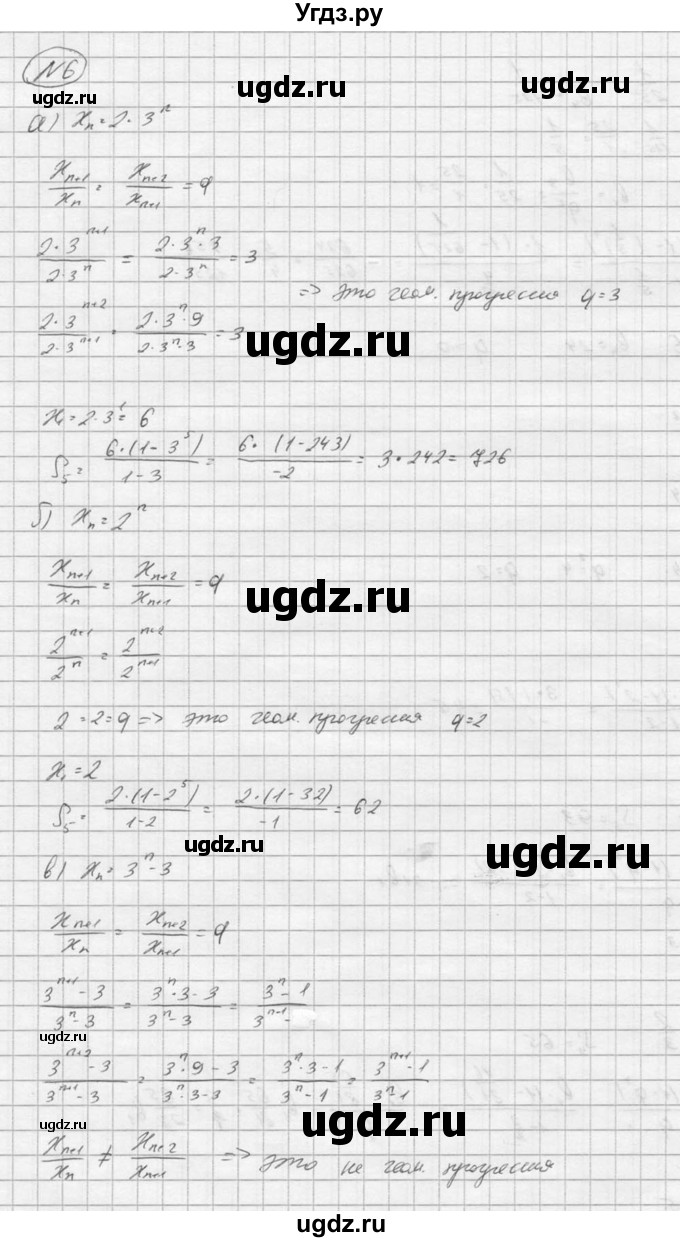 Угдз.ру
№6
ugdz.ru ugdz.ru ugdz.ru
а) xₙ = 2·3ⁿ
xₙ₊₁/xₙ = xₙ₊₂/xₙ₊₁ = q
2·3ⁿ⁺¹/2·3ⁿ = 2·3ⁿ·3/2·3ⁿ = 3
=> это геом. прогрессия q=3
2·3ⁿ⁺²/2·3ⁿ⁺¹ = 2·3ⁿ·9/2·3ⁿ·3 = 3
ugdz.ru
x₁ = 2·3¹ = 6
S₅ = 6·(1-3⁵)/1-3 = 6·(1-243)/-2 = 3·242 = 726
б) xₙ = 2ⁿ
xₙ₊₁/xₙ = xₙ₊₂/xₙ₊₁ = q
ugdz.ru
2ⁿ⁺¹/2ⁿ = 2ⁿ⁺²/2ⁿ⁺¹
2 = 2 = q => это геом. прогрессия q=2
x₁ = 2
S₅ = 2·(1-2⁵)/1-2 = 2·(1-32)/-1 = 62
ugdz.ru ugdz.ru
в) xₙ = 3ⁿ-3
xₙ₊₁/xₙ = xₙ₊₂/xₙ₊₁ = q
3ⁿ⁺¹-3/3ⁿ-3 = 3ⁿ·3-3/3ⁿ-3 = 3ⁿ-1/3ⁿ⁻¹-
ugdz.ru
3ⁿ⁺²-3/3ⁿ⁺¹-3 = 3ⁿ·9-3/3ⁿ·3-3 = 3ⁿ·3-1/3ⁿ-1 = 3ⁿ⁺¹-1/3ⁿ-1
ugdz.ru ugdz.ru
xₙ₊₁/xₙ ≠ xₙ₊₂/xₙ₊₁ => это не геом. прогрессия
ugdz.ru